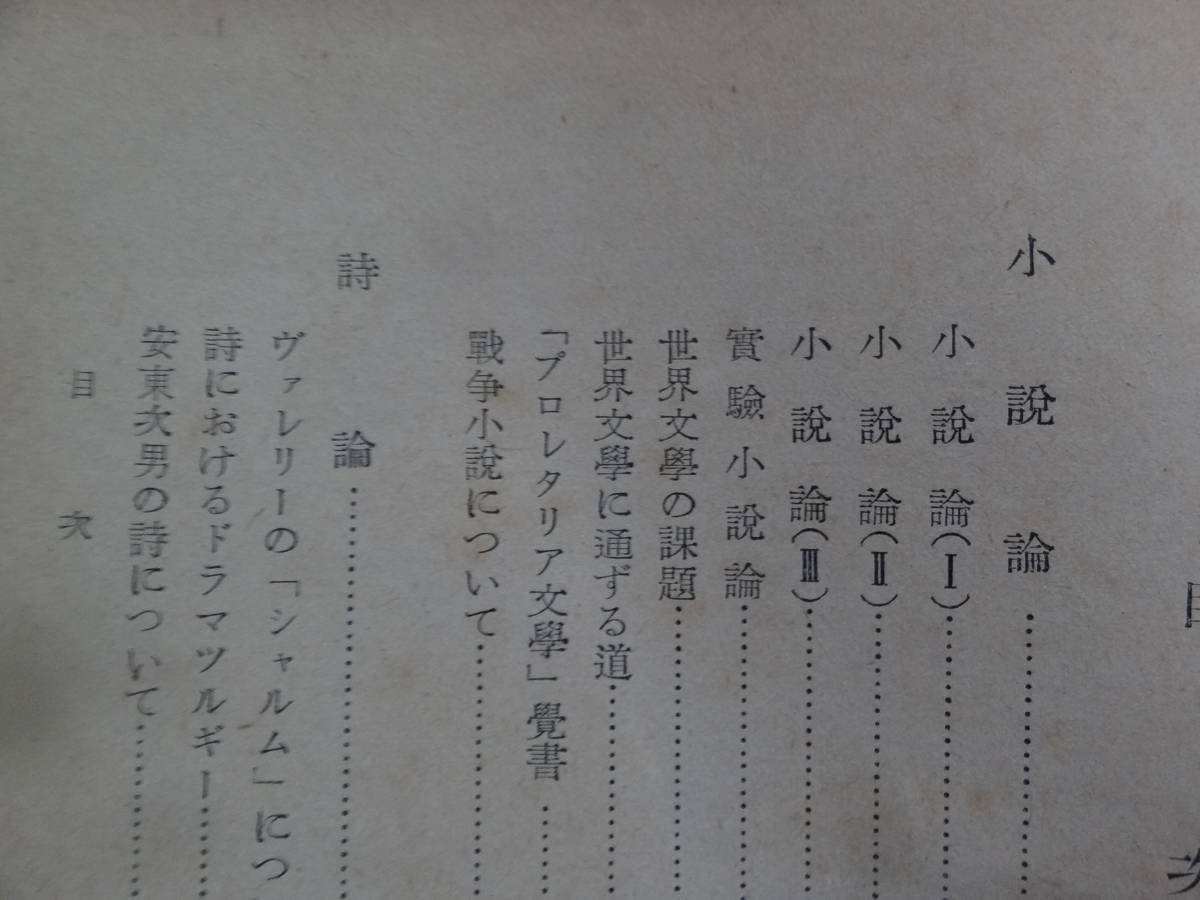 目次
小說論
小說論(Ⅰ)
小說論(Ⅱ)
小說論(Ⅲ)
實驗小說論
世界文學の課題
世界文學に通ずる道
「プロレタリア文學」覺書
戰争小說について
詩論
ヴァレリーの「シャルム」につ
詩におけるドラマツルギー
安東次男の詩について
目次